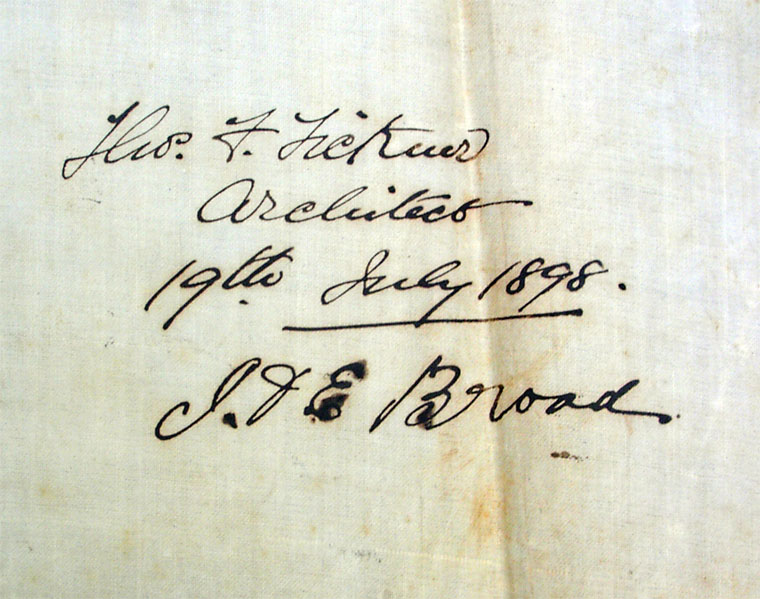 Tho. F. Tickner
Architect
19th July 1898.
J. & E Broad